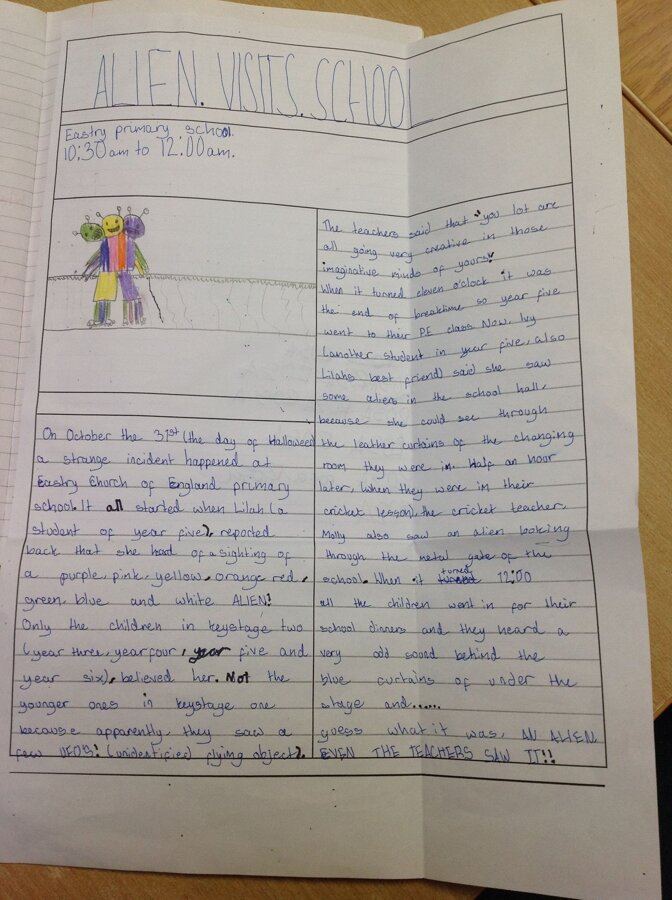 ALIEN. VISITS. SCHOOL
Eastry primary school.
10:30am to 12.00am.
On October the 31st (the day of Halloween
a strange incident happened at
Eastry Church of England primary
school. It all started when Lilah (a
student of year five), reported
back that she had of a sighting of
a purple, pink, yellow, orange, red,
green, blue and white ALIEN!
Only the children in keystage two
(year three, year four, year five and
year six), believed her. Not the
younger ones in keystage one
because apparently, they saw a
few UFO'S! (unidentified flying object).
The teachers said that "you lot are
all going very creative in those
imaginative minds of yours"
When it turned eleven o'clock it was
the end of breaktime so year five
went to their PE class. Now, Ivy
(another student in year five, also
Lilahs best friend) said she saw
some aliens in the school hall,
because she could see through
the leather curtains of the changing
room they were in. Half an hour
later, (when they were im their
cricket lesson), the cricket teacher,
Molly also saw an alien looking
through the metal gate of the
school. When it turned 12:00
all the children went in for their
school dinners and they heard a
very odd sound behind the
blue curtains of under the
stage and......
guess what it was, AN ALIEN
EVEN THE TEACHERS SAW IT!!